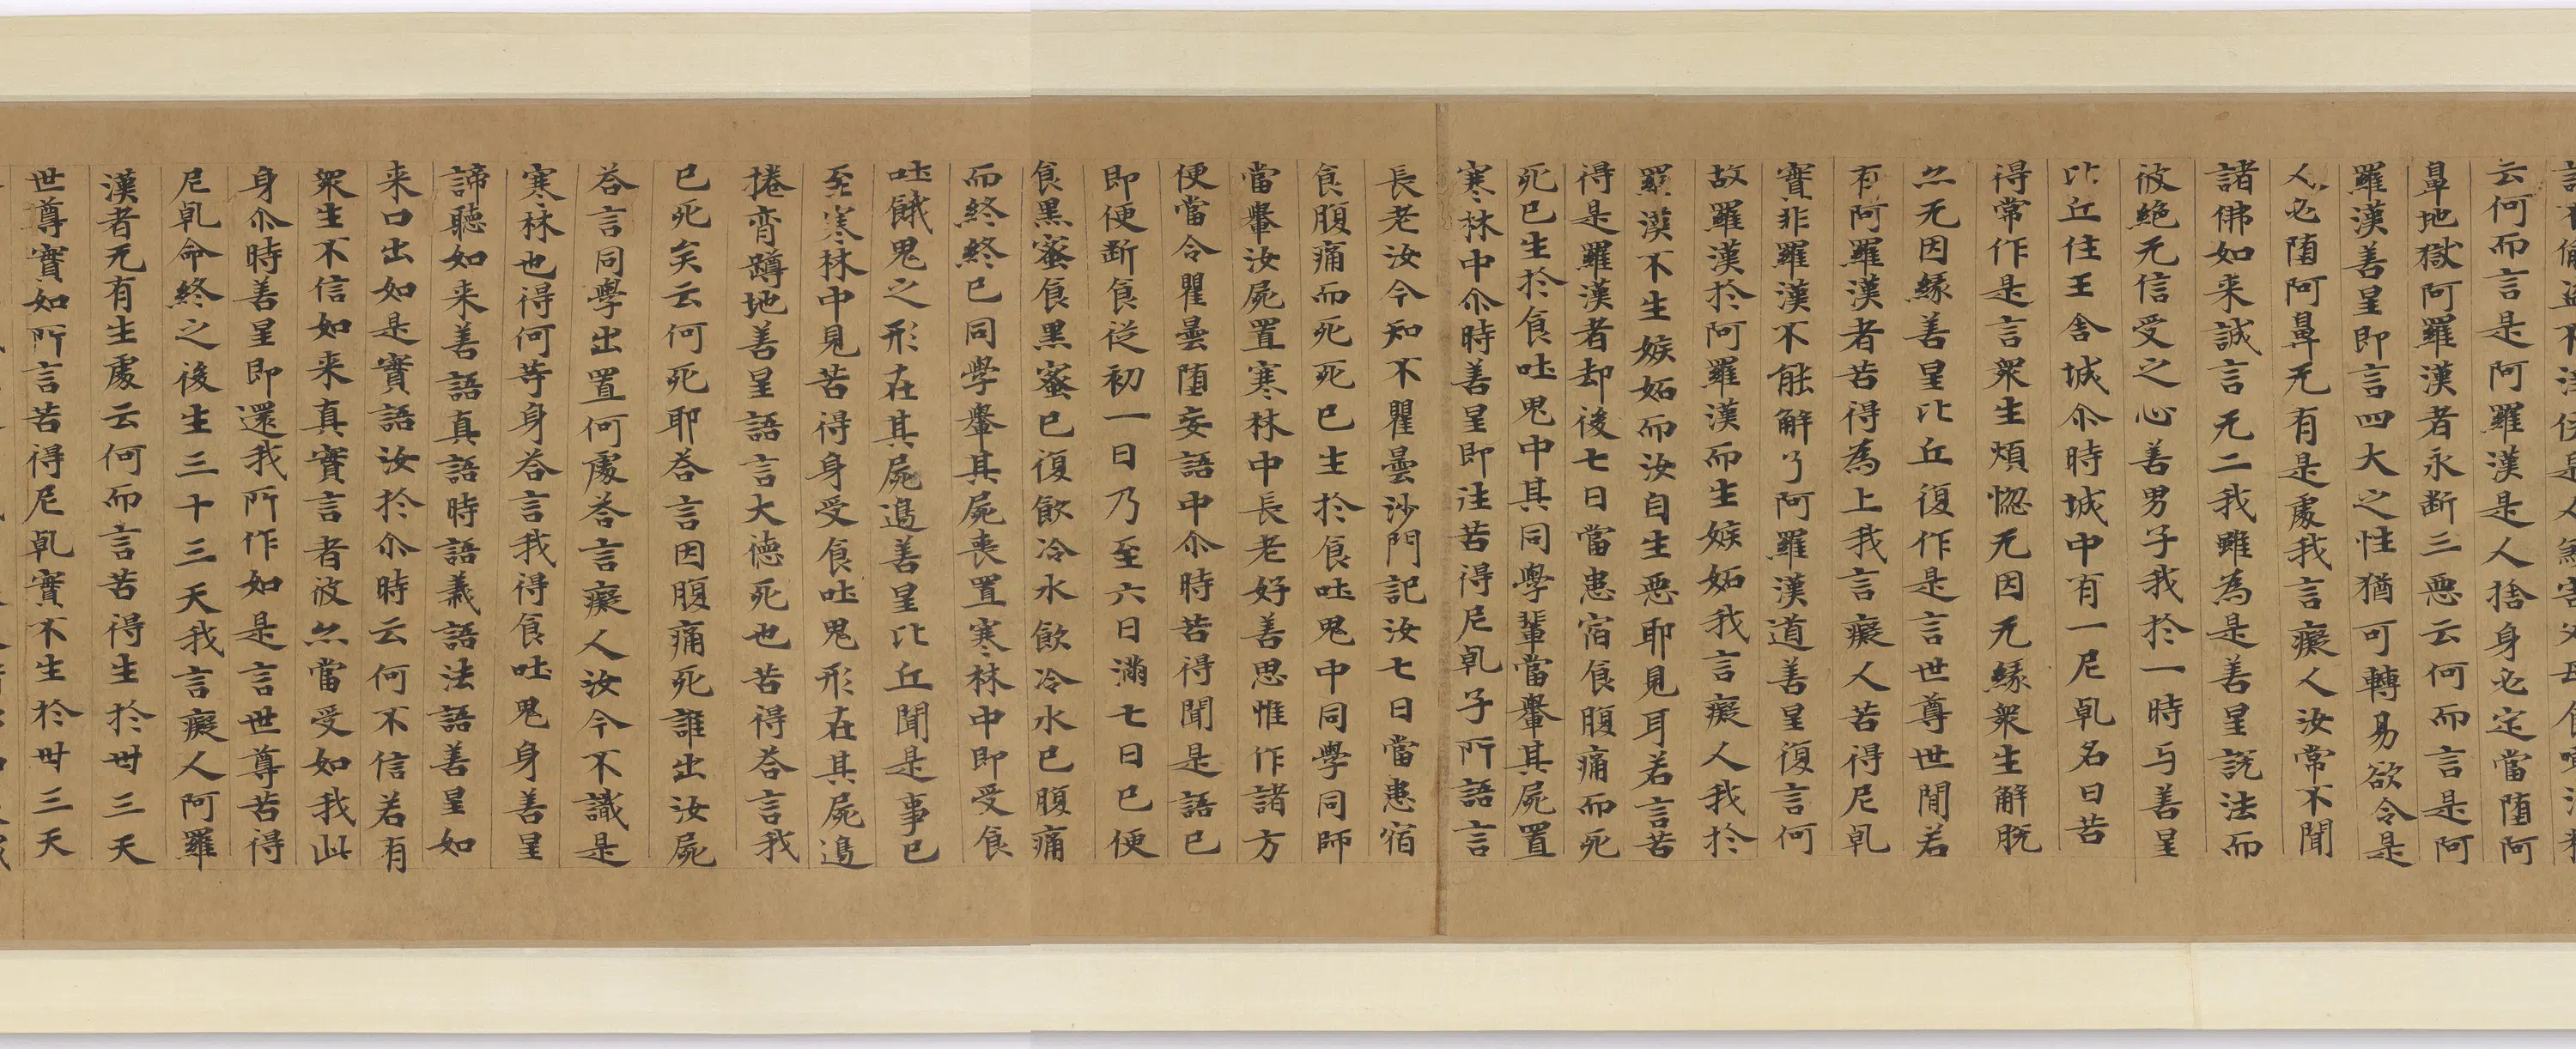 云何而言是阿羅漢是人捨身必定當堕阿
鼻地獄阿羅漢者永断三惡云何而言是阿
羅漢善星即言四大之性猶可轉易欲令是
人必堕阿鼻无有是處我言癡人汝常不聞
諸佛如来誠言无二我雖為是善星說法而
彼絶无信受之心善男子我於一時与善星
比丘住王舍城尒時城中有一尼乹名曰苦
得常作是言衆生煩惚无因无緣衆生解脫
亦无因緣善星比丘復作是言世尊世間若
有阿羅漢者苦得為上我言癡人苦得尼乹
實非羅漢不能解了阿羅漢道善星復言何
故羅漢於阿羅漢而生嫉妬我言癡人我於
羅漢不生嫉妬而汝自生惡耶見耳若言苦
得是羅漢者却後七日當患宿食腹痛而死
死已生於食吐鬼中其同學輩當轝其屍置
寒林中尒時善星即往苦得尼乹子所語言
長老汝今知不瞿曇沙門記汝七日當患宿
食腹痛而死死已生於食吐鬼中同學同師
當轝汝屍置寒林中長老好善思惟作諸方
便當令瞿曇堕妄語中尒時苦得聞是語已
即便断食從初一日乃至六日滿七日已便
食黑蜜食黑蜜已復飲冷水飲冷水已腹痛
而終終已同學轝其屍喪置寒林中即受食
吐餓鬼之形在其屍邊善星比丘聞是事已
至寒林中見苦得身受食吐鬼形在其屍邊
捲脊蹲地善星語言大德死也苦得荅言我
已死矣云何死耶荅言因腹痛死誰出汝屍
荅言同學出置何處荅言癡人汝今不識是
寒林也得何等身荅言我得食吐鬼身善星
諦聽如来善語真語時語義語法語善星如
来口出如是實語汝於尒時云何不信若有
衆生不信如来真實言者彼亦當受如我此
身尒時善星即還我所作如是言世尊苦得
尼乹命終之後生三十三天我言癡人阿羅
漢者无有生處云何而言苦得生於丗三天
世尊實如所言苦得尼乹實不生於丗三天